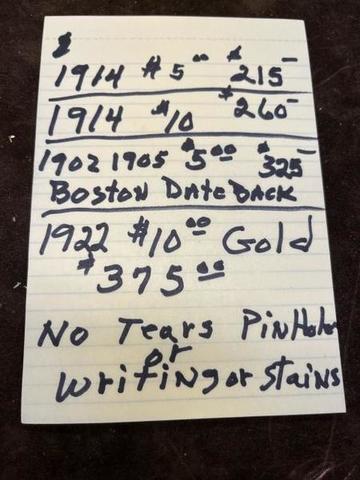 $
1914 $5 00 $215-
1914 $10 $260-
1902 1905 $5 00 $325-
BOSTON DATE BACK
1922 $10 00 Gold
$375 00
No Tears PinHoles
or
Writing or Stains